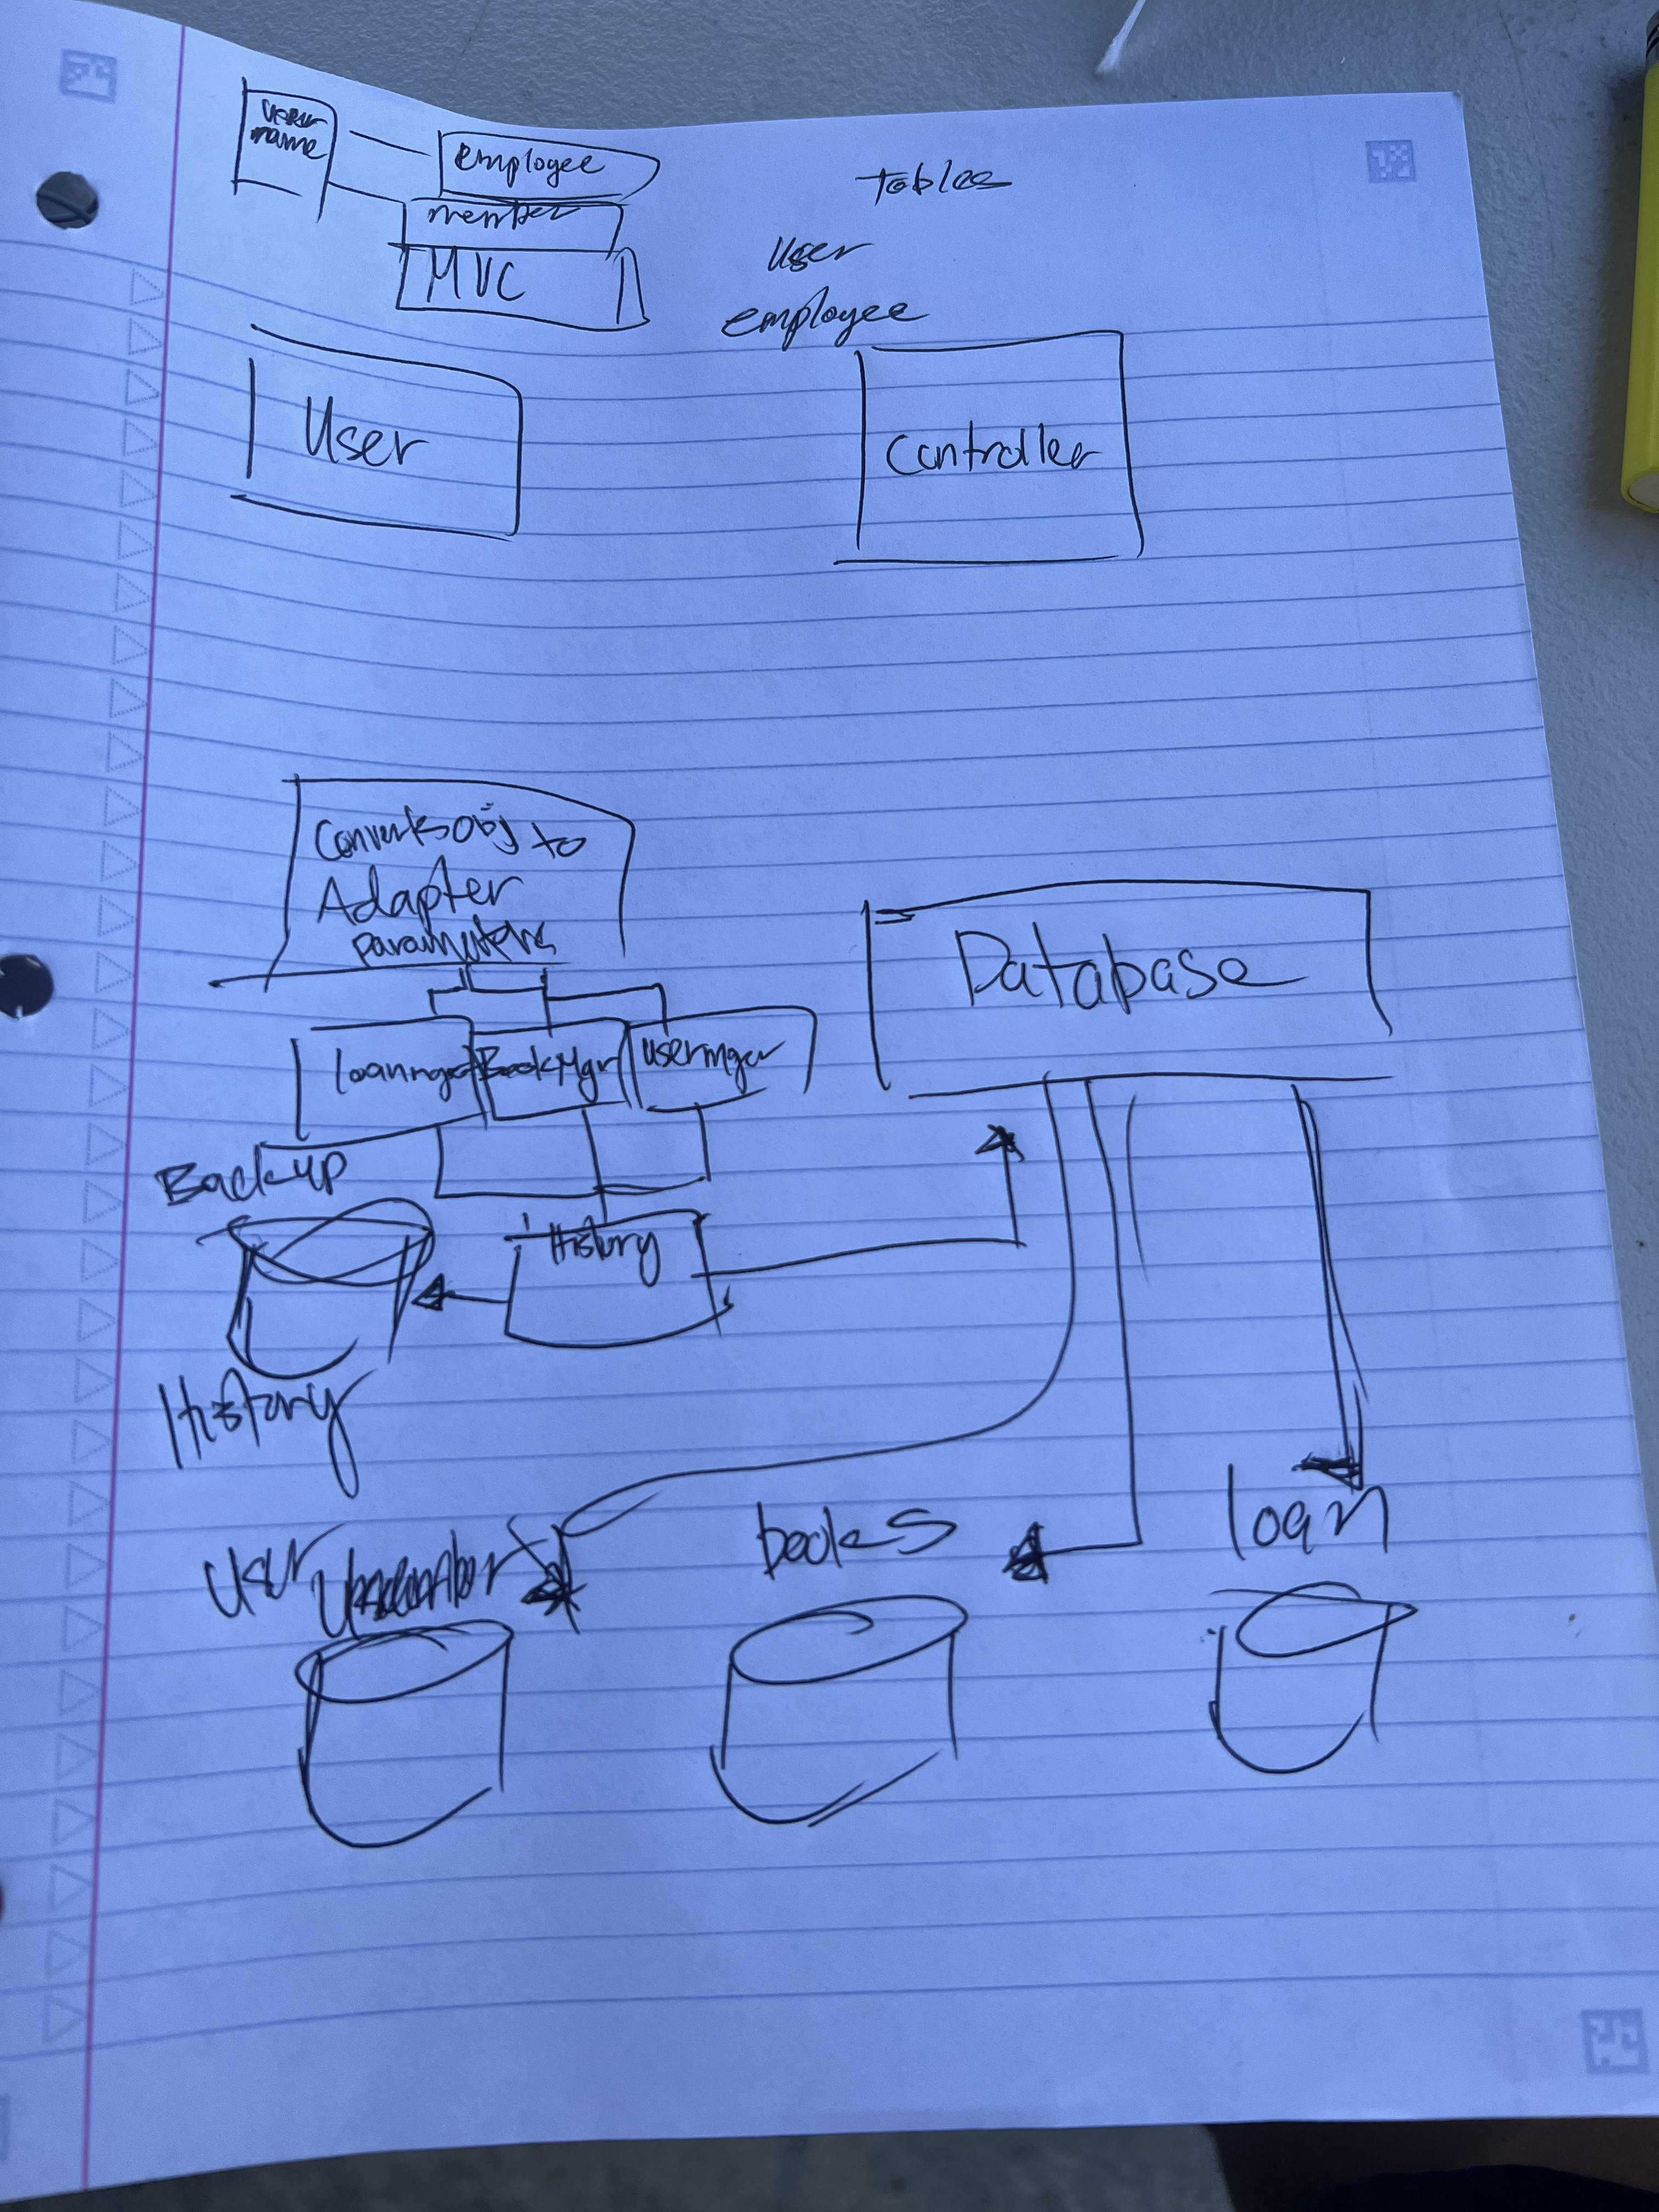 User
name
employee
member
MVC
Tables
User
employee
User
Controller
Converts obj to
Adapter
parameters
Database
loanmgr
BookMgr
usermgr
Backup
History
History
User
books
loan